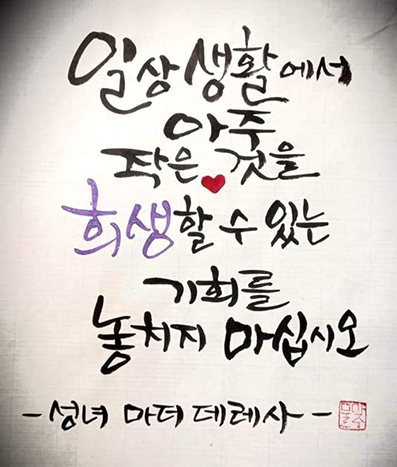 일상생활에서
아주
작은 것을
희생할 수 있는
기회를
놓치지 마십시오
- 성녀 마더 데레사 -